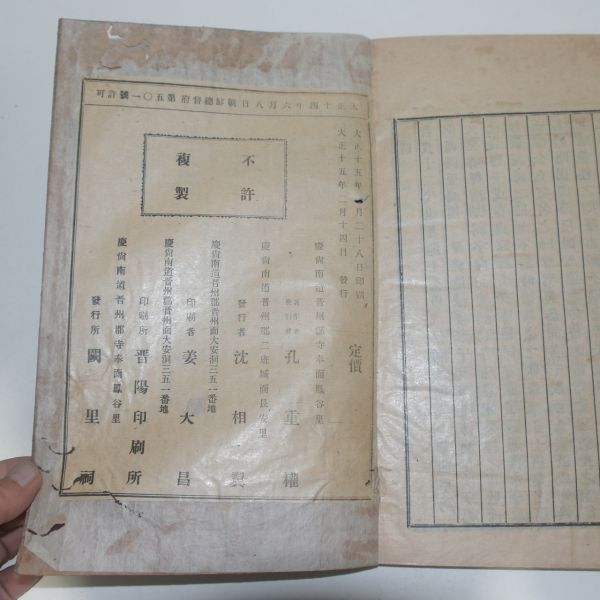 大正十四年六月八日朝鮮總督府第五〇一號許可
大正十五年 月二十八日印刷
大正十五年二月十四日 發行
不許
複製
定價
慶尙南道晋州郡寺奉面鳳谷里
著作者
發行者 孔重權
慶尙南道晋州郡二班城面長安里
發行者 沈相
慶尙南道晋州郡晋州面大安洞三五一番地
印刷者 姜大昌
慶尙南道晋州郡晋州面大安洞三五一番地
印刷所 晋陽印刷所
慶尙南道晋州郡寺奉面鳳谷里
發行所 闕里祠